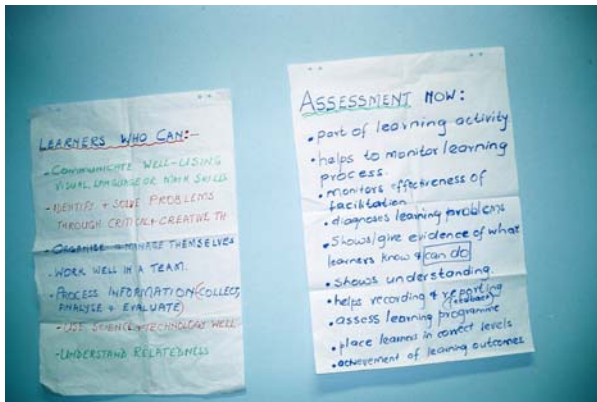 LEARNERS WHO CAN:-
- COMMUNICATE WELL-USING
VISUAL, LANGUAGE OR MATH SKILLS
- IDENTIFY + SOLVE PROBLEMS
THROUGH CRITICAL + CREATIVE TH
- ORGANISE + MANAGE THEMSELVES
- WORK WELL IN A TEAM.
- PROCESS INFORMATION (COLLECT,
ANALYSE + EVALUATE)
- USE SCIENCE + TECHNOLOGY WELL
- UNDERSTAND RELATEDNESS
ASSESSMENT NOW:
• part of learning activity
• helps to monitor learning
process.
• monitors effectiveness of
facilitation
• diagnoses learning problems
• Shows/give evidence of what
learners know & can do
• shows understanding.
• helps recording & reporting
(feedback)
• assess learning programme
• place learners in correct levels
• achievement of learning outcomes